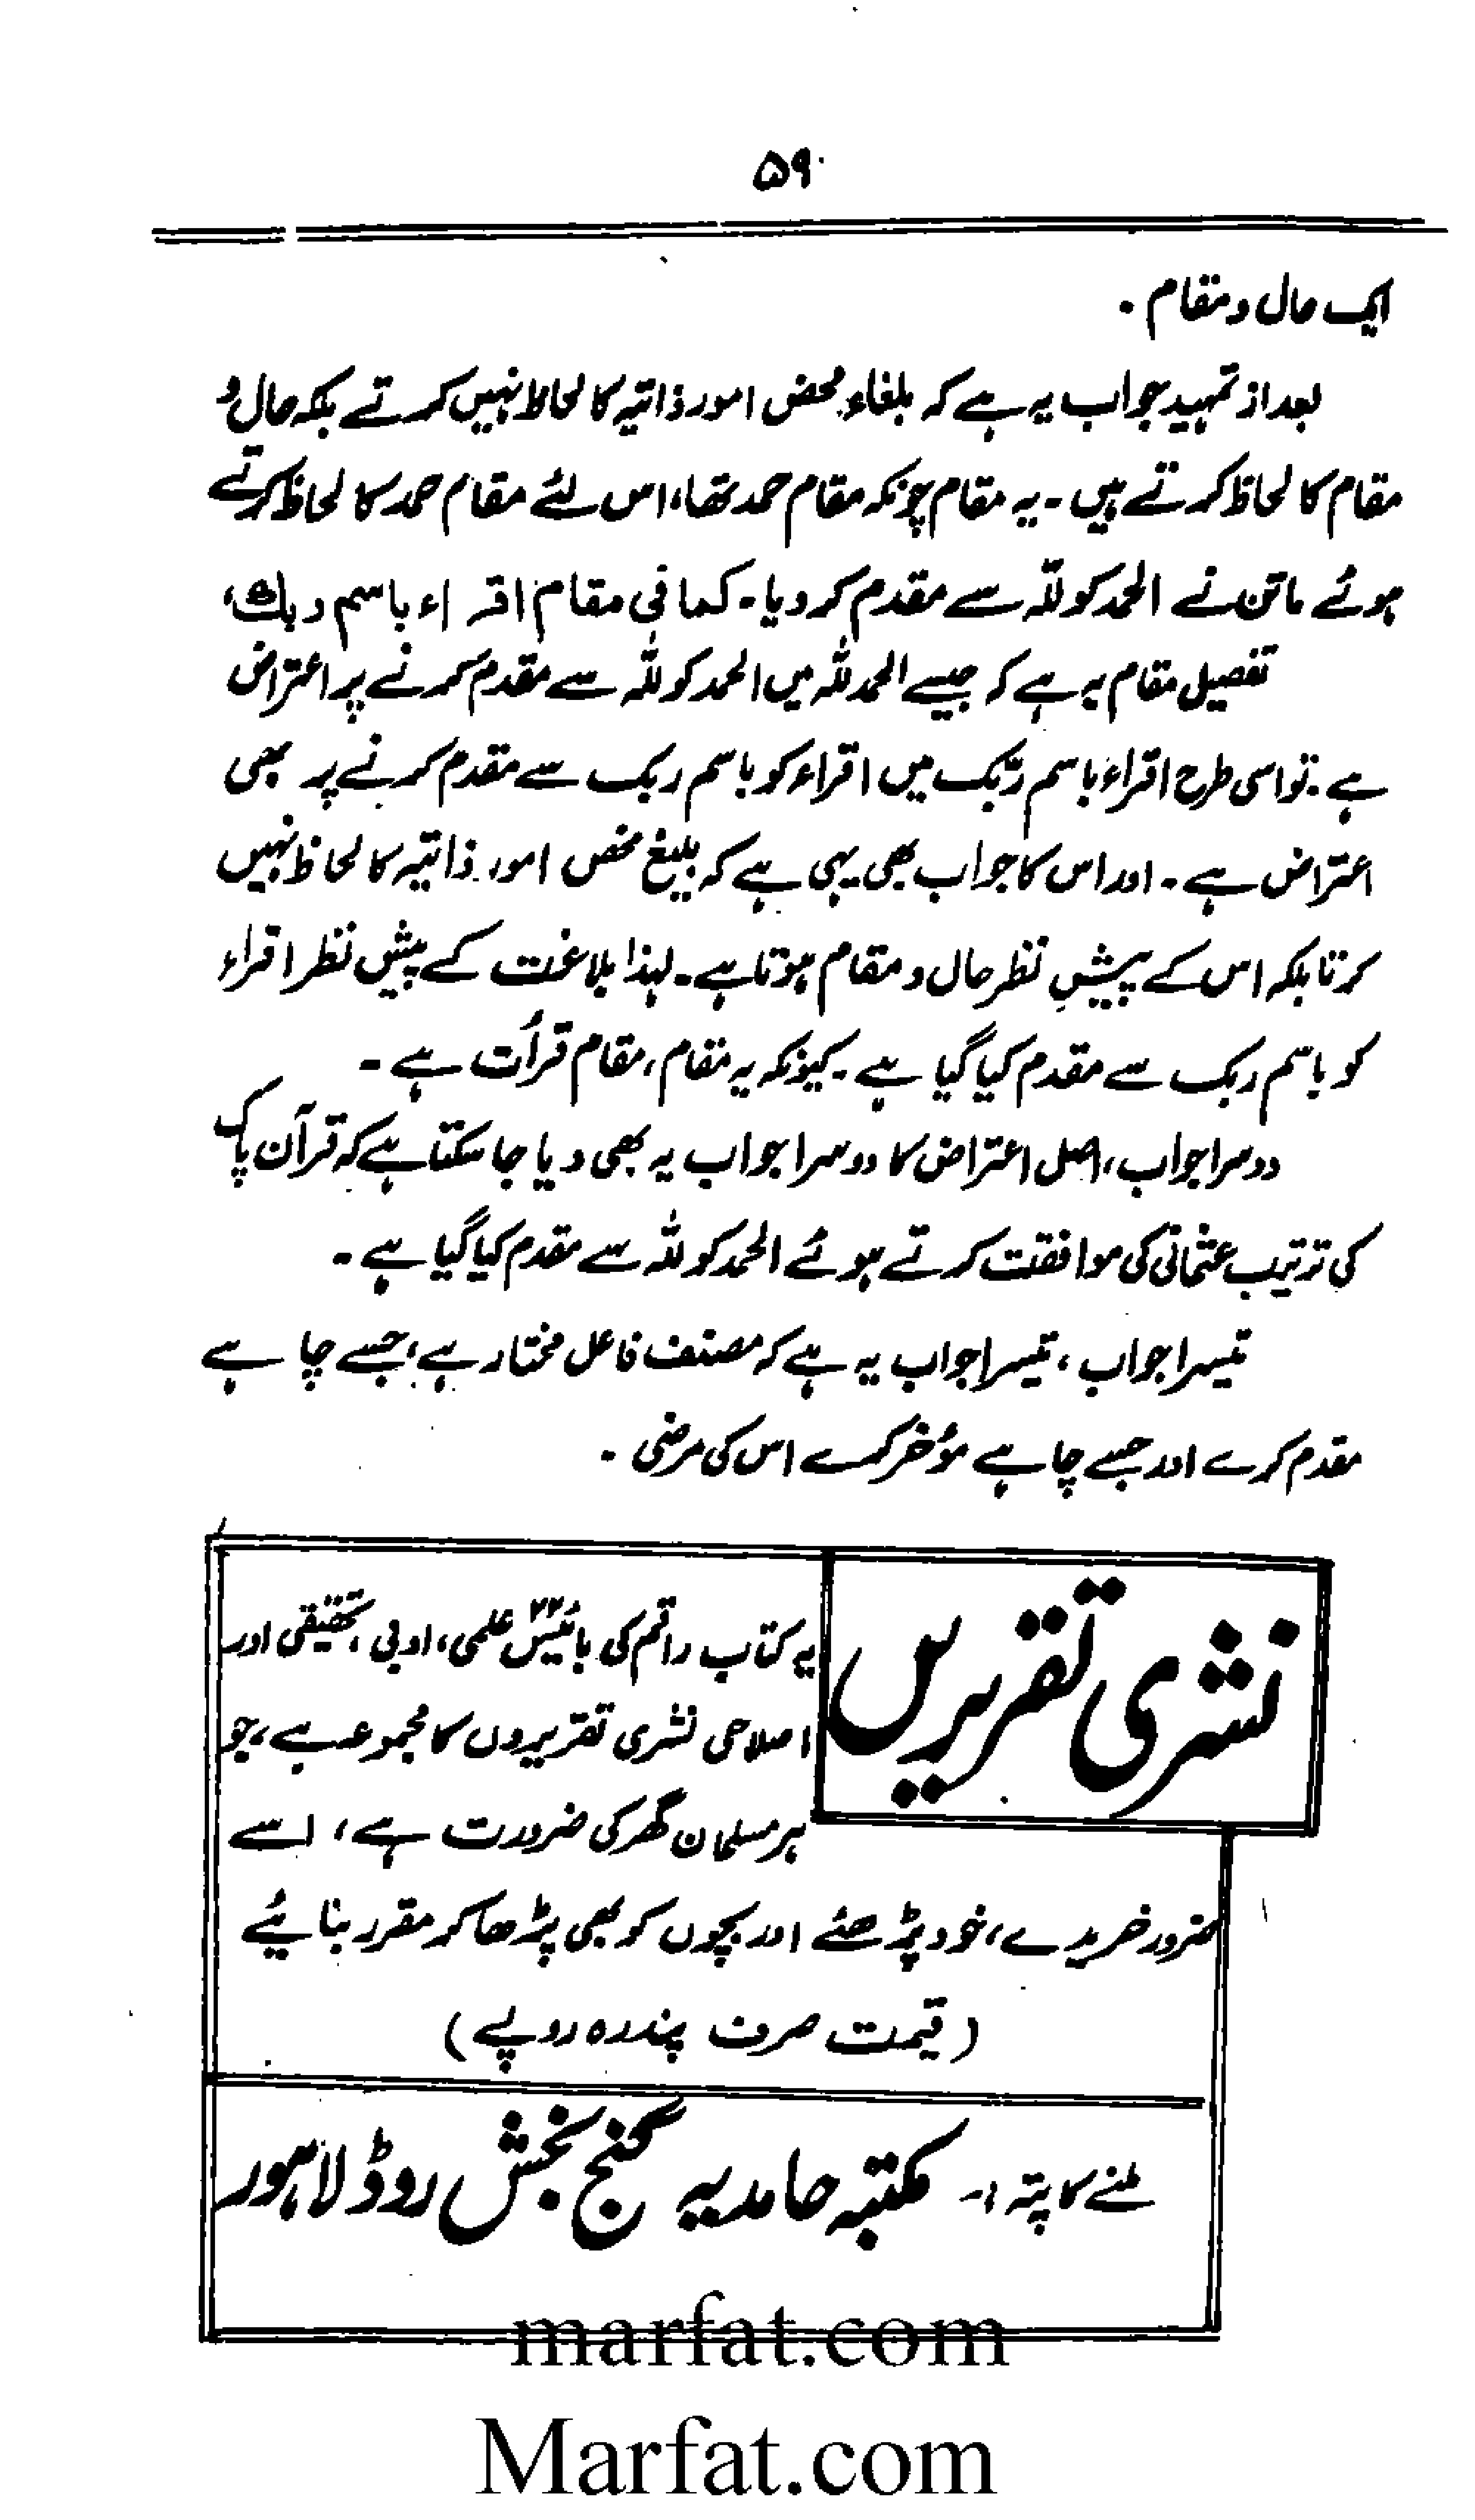 ۵۹
ایک حال و مقام .
بعد از تمہید جواب یہ ہے کہ بلغاء محض امور ذاتیّہ کا لحاظ نہیں کرتے بلکہ حال و
مقام کا لحاظ کرتے ہیں ۔ یہ مقام چونکہ مقام حمد تھا، اس لئے مقام حمد کا لحاظ کرتے
ہوئے ماتن نے الحمد کو للّٰہ سے مقدم کر دیا ۔ کما فی مقام اقراء باسم ربك،
تفصیل مقام یہ ہے کہ جیسے الحمد للّٰہ میں الحمد کو للّٰہ سے مقدم کرنے پر اعتراض
ہے ۔ تو اسی طرح اقراء باسم ربّک میں اقراء کو باسم ربک سے مقدم کرنے پر بھی
اعتراض ہے ۔ اور اس کا جواب بھی یہی ہے کہ بلیغ محض امور ذاتیّہ کا لحاظ نہیں
کرتا بلکہ اس کے پیشِ نظر حال و مقام ہوتا ہے ۔ لہذا بلاغت کے پیش نظر اقراء
کو باسم ربک سے مقدم کیا گیا ہے ۔ کیونکہ یہ مقام ، مقام قرأت ہے ۔
دوسرا جواب ، اصل اعتراض کا دوسرا جواب یہ بھی دیا جا سکتا ہے کہ قرآن پاک
کی ترتیب عثمانی کی موافقت کرتے ہوئے الحمد کو للّٰہ سے مقدم کیا گیا ہے ۔
تیسرا جواب ، تیسرا جواب یہ ہے کہ مصنف فاعل مختار ہے ، جسے چاہے
مقدم کرے اور جسے چاہے مؤخر کرے اس کی مرضی .
نشری تقریریں
یہ کتاب راقم کی بائیس ۲۲ علمی ، ادبی ، تحقیقی اور
اصلاحی نشری تقریروں کا مجموعہ ہے ، جو
ہر مسلمان گھر کی ضرورت ہے ، اسے
ضرور خریدے ، خود پڑھئے اور بچوں کو بھی پڑھا کر مقرر بنائیے
( قیمت صرف پندرہ روپے )
ملنے کا پتہ :- مکتبہ حامدیہ گنج بخش روڈ لاہور
marfat.com
Marfat.com